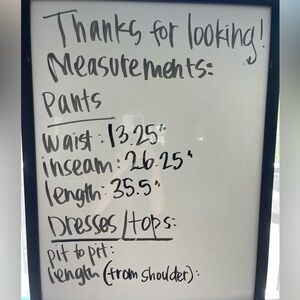 Thanks for looking!
Measurements:
Pants
Waist: 13.25"
inseam: 26.25"
length: 35.5"
Dresses/tops:
pit to pit:
length (from shoulder):